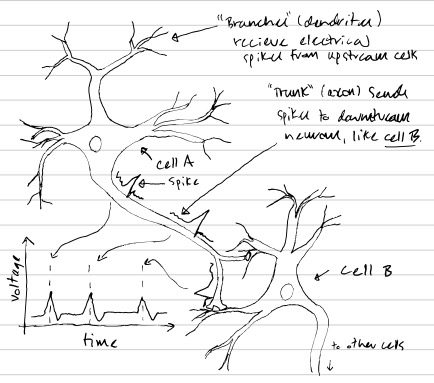 "Branches" (dendrites)
recieve electrical
spikes from upstream cells
"Trunk" (axon) sends
spikes to downstream
neurons, like cell B.
cell A
spike
cell B
voltage
time
to other cells